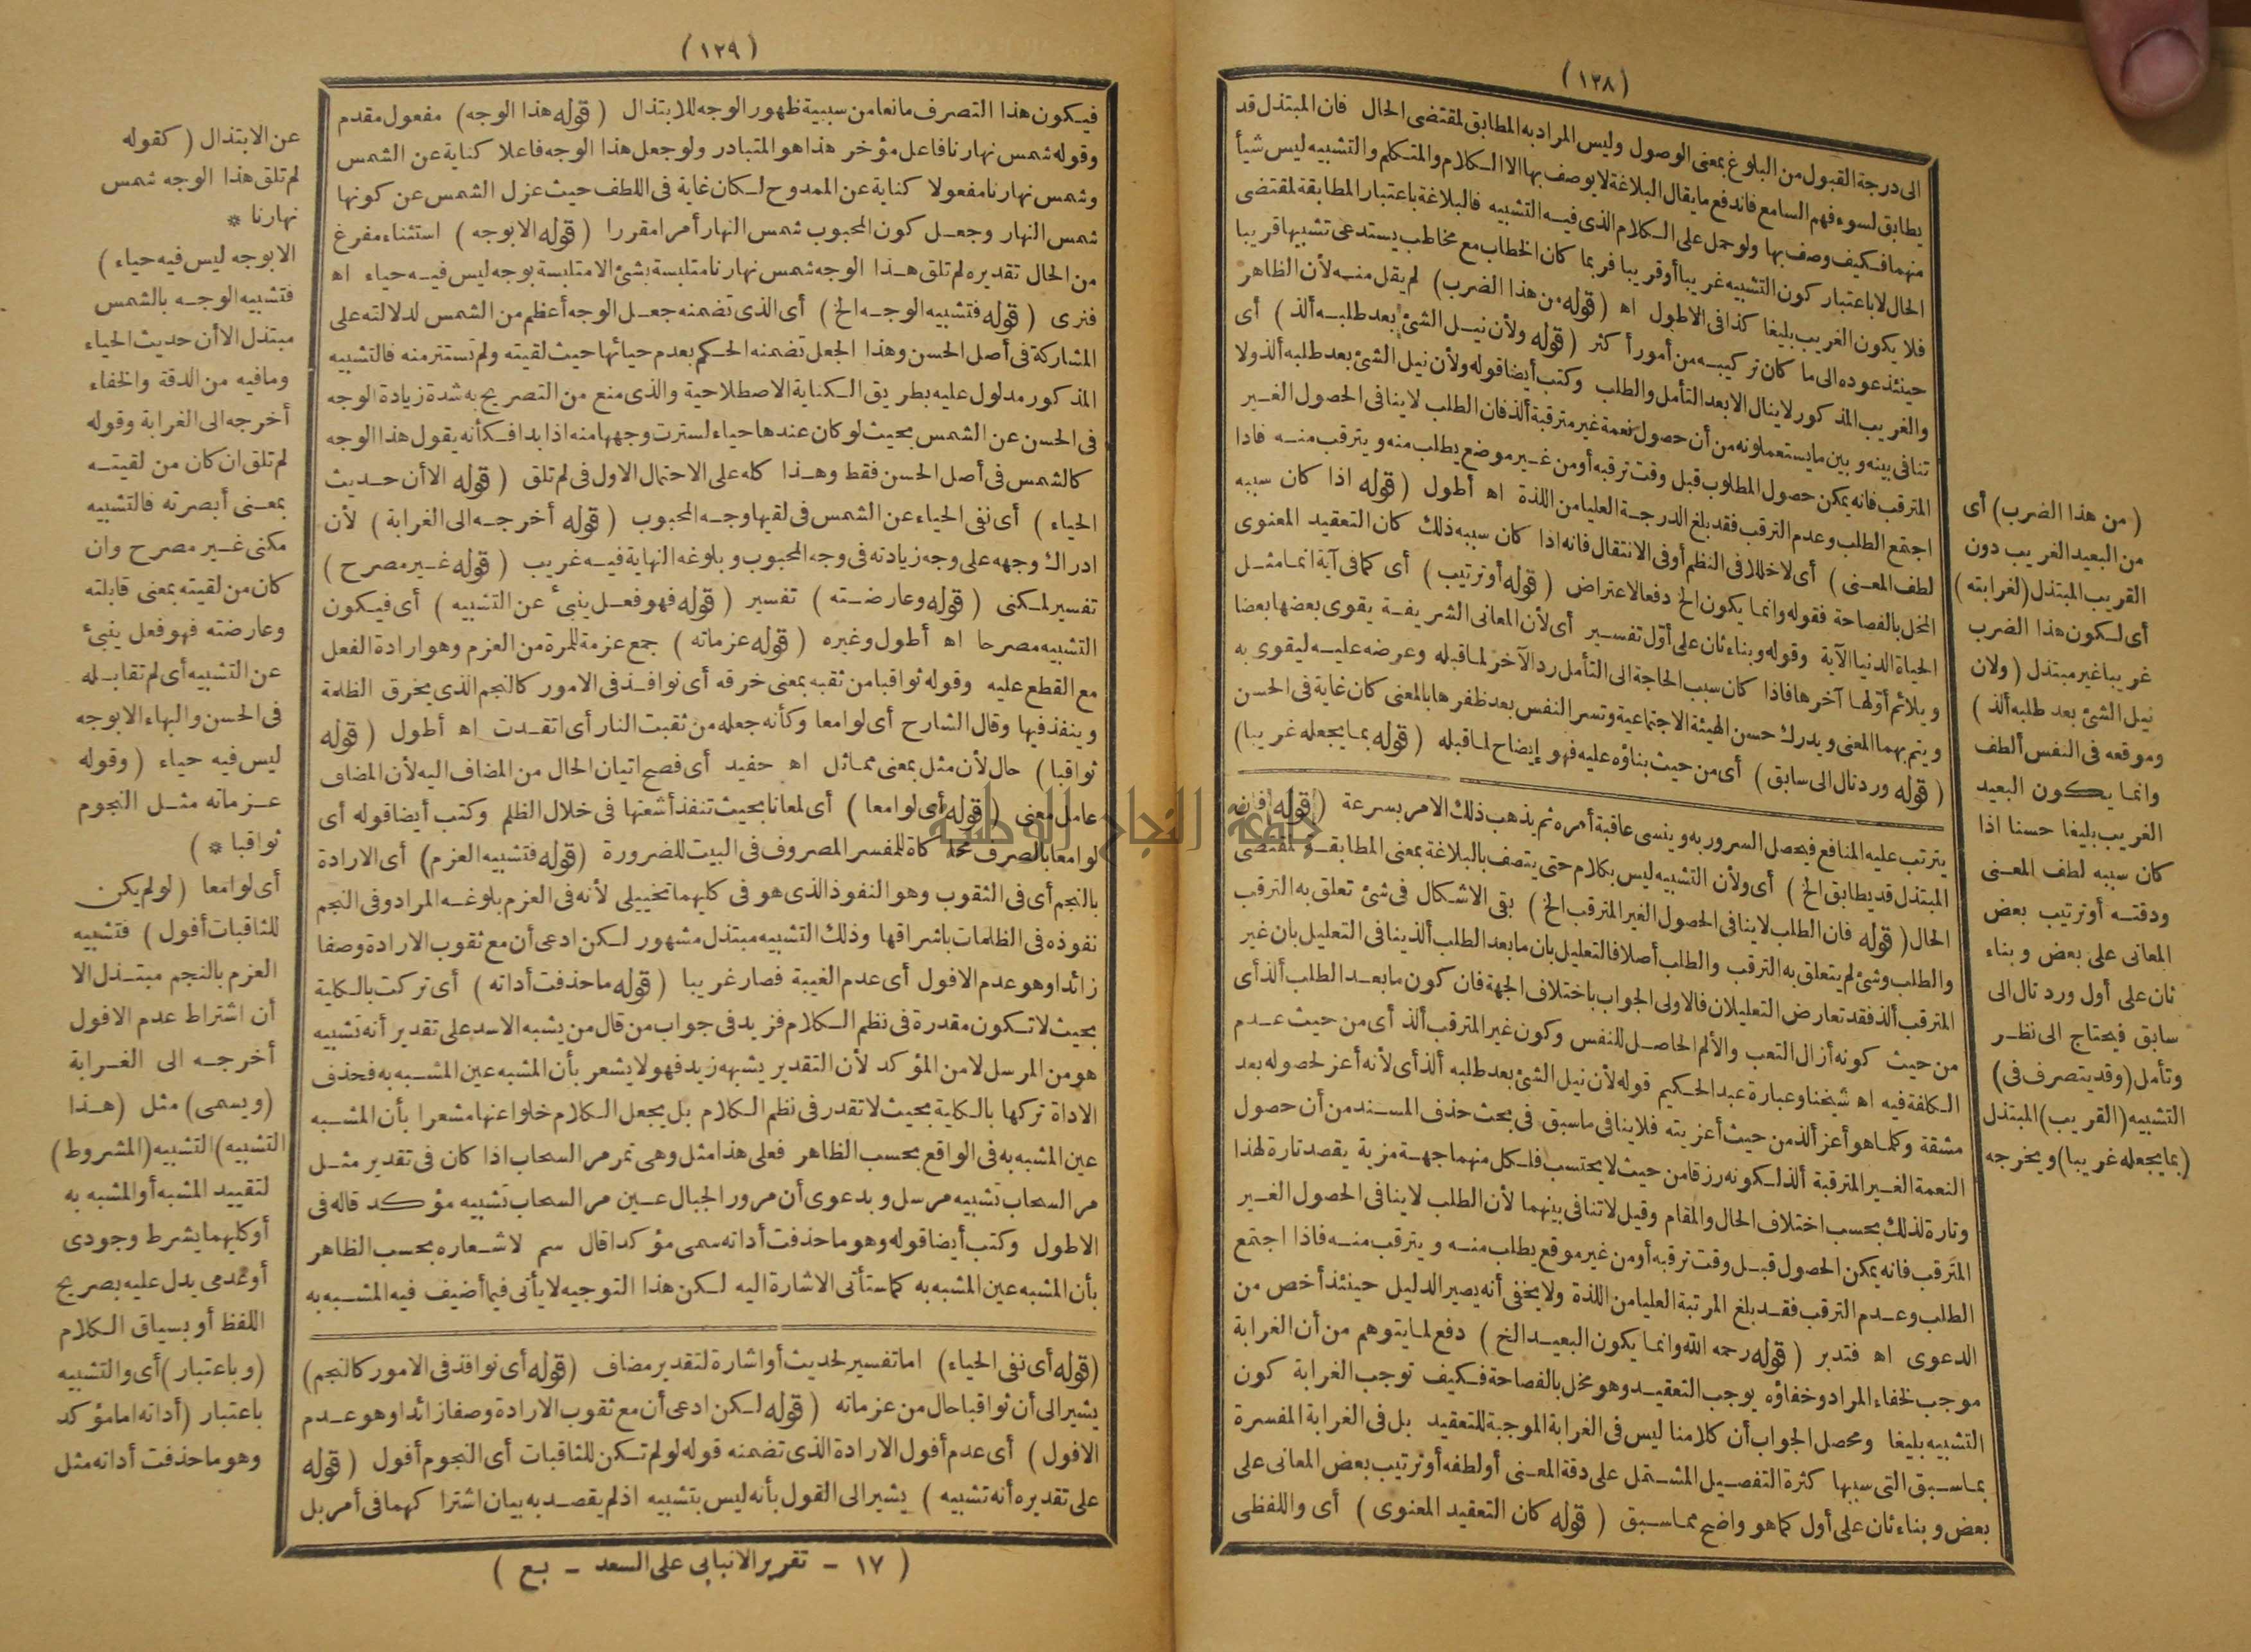 (١٢٨)
الى درجة القبول من البلوغ بمعنى الوصول وليس المراد به المطابق لمقتضى الحال فان المبتذل قد
يطابق لسوء فهم السامع فاندفع ما يقال البلاغة لا يوصف بها الا الكلام والمتكلم والتشبيه ليس شيأ
منهما فكيف وصف بها ولو حمل على الكلام الذى فيه التشبيه فالبلاغة باعتبار المطابقة لمقتضى
الحال لا باعتبار كون التشبيه غريبا أو قريبا فربما كان الخطاب مع مخاطب يستدعى تشبيها قريبا
فلا يكون الغريب بليغا كذا فى الاطول اه (قوله من هذا الضرب) لم يقل منه لأن الظاهر
حينئذ عوده الى ما كان تركيبه من أمور أكثر (قوله ولأن نيل الشئ بعد طلبه ألذ) أى
والغريب المذكور لا ينال الا بعد التأمل والطلب وكتب أيضا قوله ولأن نيل الشئ بعد طلبه ألذ ولا
تنافى بينه وبين ما يستعملونه من أن حصول نعمة غير مترقبة ألذ فان الطلب لا ينافى الحصول الغير
المترقب فانه يمكن حصول المطلوب قبل وقت ترقبه أو من غير موضع يطلب منه ويترقب منه فاذا
اجتمع الطلب وعدم الترقب فقد بلغ الدرجة العليا من اللذة اه أطول (قوله اذا كان سببه
لطف المعنى) أى لا خللا فى النظم أو فى الانتقال فانه اذا كان سببه ذلك كان التعقيد المعنوى
المخل بالفصاحة فقوله وانما يكون الخ دفعا لاعتراض (قوله أو ترتيب) أى كما فى آية انما مثل
الحياة الدنيا الآية وقوله وبناء ثان على أول تفسير أى لأن المعانى الشريفة يقوى بعضها بعضا
ويلائم أولها آخرها فاذا كان سبب الحاجة الى التأمل رد الآخر لما قبله وعرضه عليه ليقوى به
ويتم بهما المعنى ويدرك حسن الهيئة الاجتماعية وتسر النفس بعد ظفرها بالمعنى كان غاية فى الحسن
(قوله ورد تال الى سابق) أى من حيث بناؤه عليه فهو إيضاح لما قبله (قوله بما يجعله غريبا)
يترتب عليه المنافع فيحصل السرور به وينسى عاقبة أمره ثم يذهب ذلك الامر بسرعة (قوله فان
المبتذل قد يطابق الخ) أى ولأن التشبيه ليس بكلام حتى يتصف بالبلاغة بمعنى المطابقة لمقتضى
الحال (قوله فان الطلب لا ينافى الحصول الغير المترقب الخ) بقى الاشكال فى شئ تعلق به الترقب
والطلب وشئ لم يتعلق به الترقب والطلب أصلا فالتعليل بان ما بعد الطلب ألذ ينافى التعليل بان غير
المترقب ألذ فقد تعارض التعليلان فالاولى الجواب باختلاف الجهة فان كون ما بعد الطلب ألذ أى
من حيث كونه أزال التعب والألم الحاصل للنفس وكون غير المترقب ألذ أى من حيث عدم
الكلفة فيه اه شيخنا وعبارة عبد الحكيم قوله لأن نيل الشئ بعد طلبه ألذ أى لأنه أعز لحصوله بعد
مشقة وكلما هو أعز ألذ من حيث أعزيته فلا ينافى ما سبق فى بحث حذف المسند من أن حصول
النعمة الغير المترقبة ألذ لكونه رزقا من حيث لا يحتسب فلكل منهما جهة مزية يقصد تارة لهذا
وتارة لذلك بحسب اختلاف الحال والمقام وقيل لا تنافى بينهما لأن الطلب لا ينافى الحصول الغير
المترقب فانه يمكن الحصول قبل وقت ترقبه أو من غير موقع يطلب منه ويترقب منه فاذا اجتمع
الطلب وعدم الترقب فقد بلغ المرتبة العليا من اللذة ولا يخفى أنه يصير الدليل حينئذ أخص من
الدعوى اه فتدبر (قوله رحمه الله وانما يكون البعيد الخ) دفع لما يتوهم من أن الغرابة
موجب لخفاء المراد وخفاؤه يوجب التعقيد وهو مخل بالفصاحة فكيف توجب الغرابة كون
التشبيه بليغا ومحصل الجواب أن كلامنا ليس فى الغرابة الموجبة للتعقيد بل فى الغرابة المفسرة
بما سبق التى سببها كثرة التفصيل المشتمل على دقة المعنى أو لطفه أو ترتيب بعض المعانى على
بعض وبناء ثان على أول كما هو واضح مما سبق (قوله كان التعقيد المعنوى) أى واللفظى
(من هذا الضرب) أى
من البعيد الغريب دون
القريب المبتذل (لغرابته)
أى لكون هذا الضرب
غريبا غير مبتذل (ولان
نيل الشئ بعد طلبه ألذ)
وموقعه فى النفس ألطف
وانما يكون البعيد
الغريب بليغا حسنا اذا
كان سببه لطف المعنى
ودقته أو ترتيب بعض
المعانى على بعض وبناء
ثان على أول ورد تال الى
سابق فيحتاج الى نظر
وتأمل (وقد يتصرف فى)
التشبيه (القريب) المبتذل
(بما يجعله غريبا) ويخرجه
(١٢٩)
فيكون هذا التصرف مانعا من سببية ظهور الوجه للابتذال (قوله هذا الوجه) مفعول مقدم
وقوله شمس نهارنا فاعل مؤخر هذا هو المتبادر ولو جعل هذا الوجه فاعلا كناية عن الشمس
وشمس نهارنا مفعولا كناية عن الممدوح لكان غاية فى اللطف حيث عزل الشمس عن كونها
شمس النهار وجعل كون المحبوب شمس النهار أمرا مقررا (قوله الا بوجه) استثناء مفرغ
من الحال تقديره لم تلق هذا الوجه شمس نهارنا متلبسة بشئ الا متلبسة بوجه ليس فيه حياء اه
فنرى (قوله فتشبيه الوجه الخ) أى الذى تضمنه جعل الوجه أعظم من الشمس لدلالته على
المشاركة فى أصل الحسن وهذا الجعل تضمنه الحكم بعدم حيائها حيث لقيته ولم تستتر منه فالتشبيه
المذكور مدلول عليه بطريق الكناية الاصطلاحية والذى منع من التصريح به شدة زيادة الوجه
فى الحسن عن الشمس بحيث لو كان عندها حياء لسترت وجهها منه اذا بدا فكأنه يقول هذا الوجه
كالشمس فى أصل الحسن فقط وهذا كله على الاحتمال الاول فى لم تلق (قوله الا أن حديث
الحياء) أى نفى الحياء عن الشمس فى لقيها وجه المحبوب (قوله أخرجه الى الغرابة) لأن
ادراك وجهه على وجه زيادته فى وجه المحبوب وبلوغه النهاية فيه غريب (قوله غير مصرح)
تفسير لمكنى (قوله وعارضته) تفسير (قوله فهو فعل ينبئ عن التشبيه) أى فيكون
التشبيه مصرحا اه أطول وغيره (قوله عزماته) جمع عزمة للمرة من العزم وهو ارادة الفعل
مع القطع عليه وقوله ثواقبا من ثقبه بمعنى خرقه أى نوافذ فى الامور كالنجم الذى يخرق الظلمة
وينفذ فيها وقال الشارح أى لوامعا وكأنه جعله من ثقبت النار أى اتقدت اه أطول (قوله
ثواقبا) حال لأن مثل بمعنى مماثل اه حفيد أى فصح اتيان الحال من المضاف اليه لأن المضاف
عامل معنى (قوله أى لوامعا) أى لمعانا بحيث تنفذ أشعتها فى خلال الظلم وكتب أيضا قوله أى
لوامعا بالصرف محاكاة للمفسر المصروف فى البيت للضرورة (قوله فتشبيه العزم) أى الارادة
بالنجم أى فى الثقوب وهو النفوذ الذى هو فى كليهما تخييلى لأنه فى العزم بلوغه المراد وفى النجم
نفوذه فى الظلمات باشراقها وذلك التشبيه مبتذل مشهور لكن ادعى أن مع ثقوب الارادة وصفا
زائدا وهو عدم الافول أى عدم الغيبة فصار غريبا (قوله ما حذفت أداته) أى تركت بالكلية
بحيث لا تكون مقدرة فى نظم الكلام فزيد فى جواب من قال من يشبه الاسد على تقدير أنه تشبيه
هو من المرسل لا من المؤكد لأن التقدير يشبهه زيد فهو لا يشعر بأن المشبه عين المشبه به فحذف
الاداة تركها بالكلية بحيث لا تقدر فى نظم الكلام بل يجعل الكلام خلوا عنها مشعرا بأن المشبه
عين المشبه به فى الواقع بحسب الظاهر فعلى هذا مثل وهى تمر مر السحاب اذا كان فى تقدير مثل
مر السحاب تشبيه مرسل وبدعوى أن مرور الجبال عين مر السحاب تشبيه مؤكد قاله فى
الاطول وكتب أيضا قوله وهو ما حذفت أداته سمى مؤكدا قال سم لاشعاره بحسب الظاهر
بأن المشبه عين المشبه به كما ستأتى الاشارة اليه لكن هذا التوجيه لا يأتى فيما أضيف فيه المشبه به
(قوله أى نفى الحياء) اما تفسير لحديث أو اشارة لتقدير مضاف (قوله أى نوافذ فى الامور كالنجم)
يشير الى أن ثواقبا حال من عزماته (قوله لكن ادعى أن مع ثقوب الارادة وصفا زائدا وهو عدم
الافول) أى عدم أفول الارادة الذى تضمنه قوله لو لم تكن للثاقبات أى النجوم أفول (قوله
على تقديره أنه تشبيه) يشير الى القول بأنه ليس بتشبيه اذ لم يقصد به بيان اشتراكهما فى أمر بل
عن الابتذال (كقوله
لم تلق هذا الوجه شمس
نهارنا *
الا بوجه ليس فيه حياء)
فتشبيه الوجه بالشمس
مبتذل الا أن حديث الحياء
وما فيه من الدقة والخفاء
أخرجه الى الغرابة وقوله
لم تلق ان كان من لقيته
بمعنى أبصرته فالتشبيه
مكنى غير مصرح وان
كان من لقيته بمعنى قابلته
وعارضته فهو فعل ينبئ
عن التشبيه أى لم تقابله
فى الحسن والبهاء الا بوجه
ليس فيه حياء (وقوله
عزماته مثل النجوم
ثواقبا *)
أى لوامعا (لو لم يكن
للثاقبات أفول) فتشبيه
العزم بالنجم مبتذل الا
أن اشتراط عدم الافول
أخرجه الى الغرابة
(ويسمى) مثل (هذا
التشبيه) التشبيه (المشروط)
لتقييد المشبه أو المشبه به
أو كليهما بشرط وجودى
أو عدمى يدل عليه بصريح
اللفظ أو بسياق الكلام
(وباعتبار) أى والتشبيه
باعتبار (أداته اما مؤكد
وهو ما حذفت أداته مثل
(١٧ - تقرير الانبابى على السعد - بع)
جامعة النجاح الوطنية